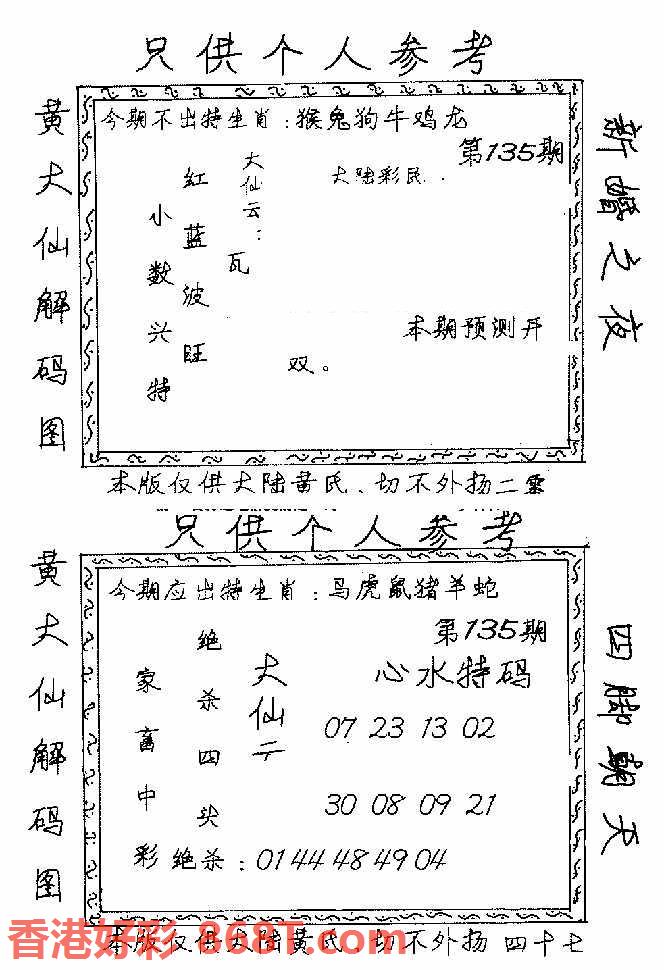 只供个人参考
黄大仙解码图
今期不出特生肖：猴兔狗牛鸡龙
第135期
大陆彩民．
大仙云：瓦
红蓝波旺
小数兴特
本期预测开
双。
新婚之夜
本版仅供大陆黄氏、切不外扬二零
只供个人参考
黄大仙解码图
今期应出特生肖：马虎鼠猪羊蛇
第135期
心水特码
大仙云
绝杀四头
家畜中彩
07 23 13 02
30 08 09 21
绝杀：01 44 48 49 04
四脚朝天
本版仅供大陆黄氏、切不外扬 四十七
香港好彩.868T.com